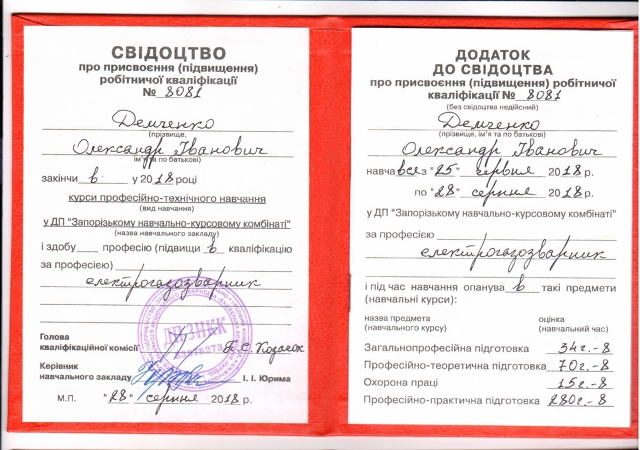 СВІДОЦТВО
про присвоєння (підвищення)
робітничої кваліфікації
№ 8081
Демченко
(прізвище,
Олександр Іванович
ім'я та по батькові)
закінчи в у 2018 році
курси професійно-технічного навчання
(вид навчання)
у ДП "Запорізькому навчально-курсовому комбінаті"
(назва навчального закладу)
і здобу професію (підвищи в кваліфікацію
за професією)
електрогазозварник
Голова
кваліфікаційної комісії
Керівник
навчального закладу І. І. Юрима
М.П. "28" серпня 2018 р.
ДОДАТОК
ДО СВІДОЦТВА
про присвоєння (підвищення) робітничої
кваліфікації № 8081
(без свідоцтва недійсний)
Демченко
(прізвище, ім'я та по батькові)
Олександр Іванович
навчався з "25" червня 2018 р.
по "28" серпня 2018 р.
у ДП "Запорізькому навчально-курсовому комбінаті"
за професією
електрогазозварник
і під час навчання опанува в такі предмети
(навчальні курси):
назва предмета оцінка
(навчального курсу) (навчальний час)
Загальнопрофесійна підготовка 34г.-8
Професійно-теоретична підготовка 70г.-8
Охорона праці 15г.-8
Професійно-практична підготовка 280г-8